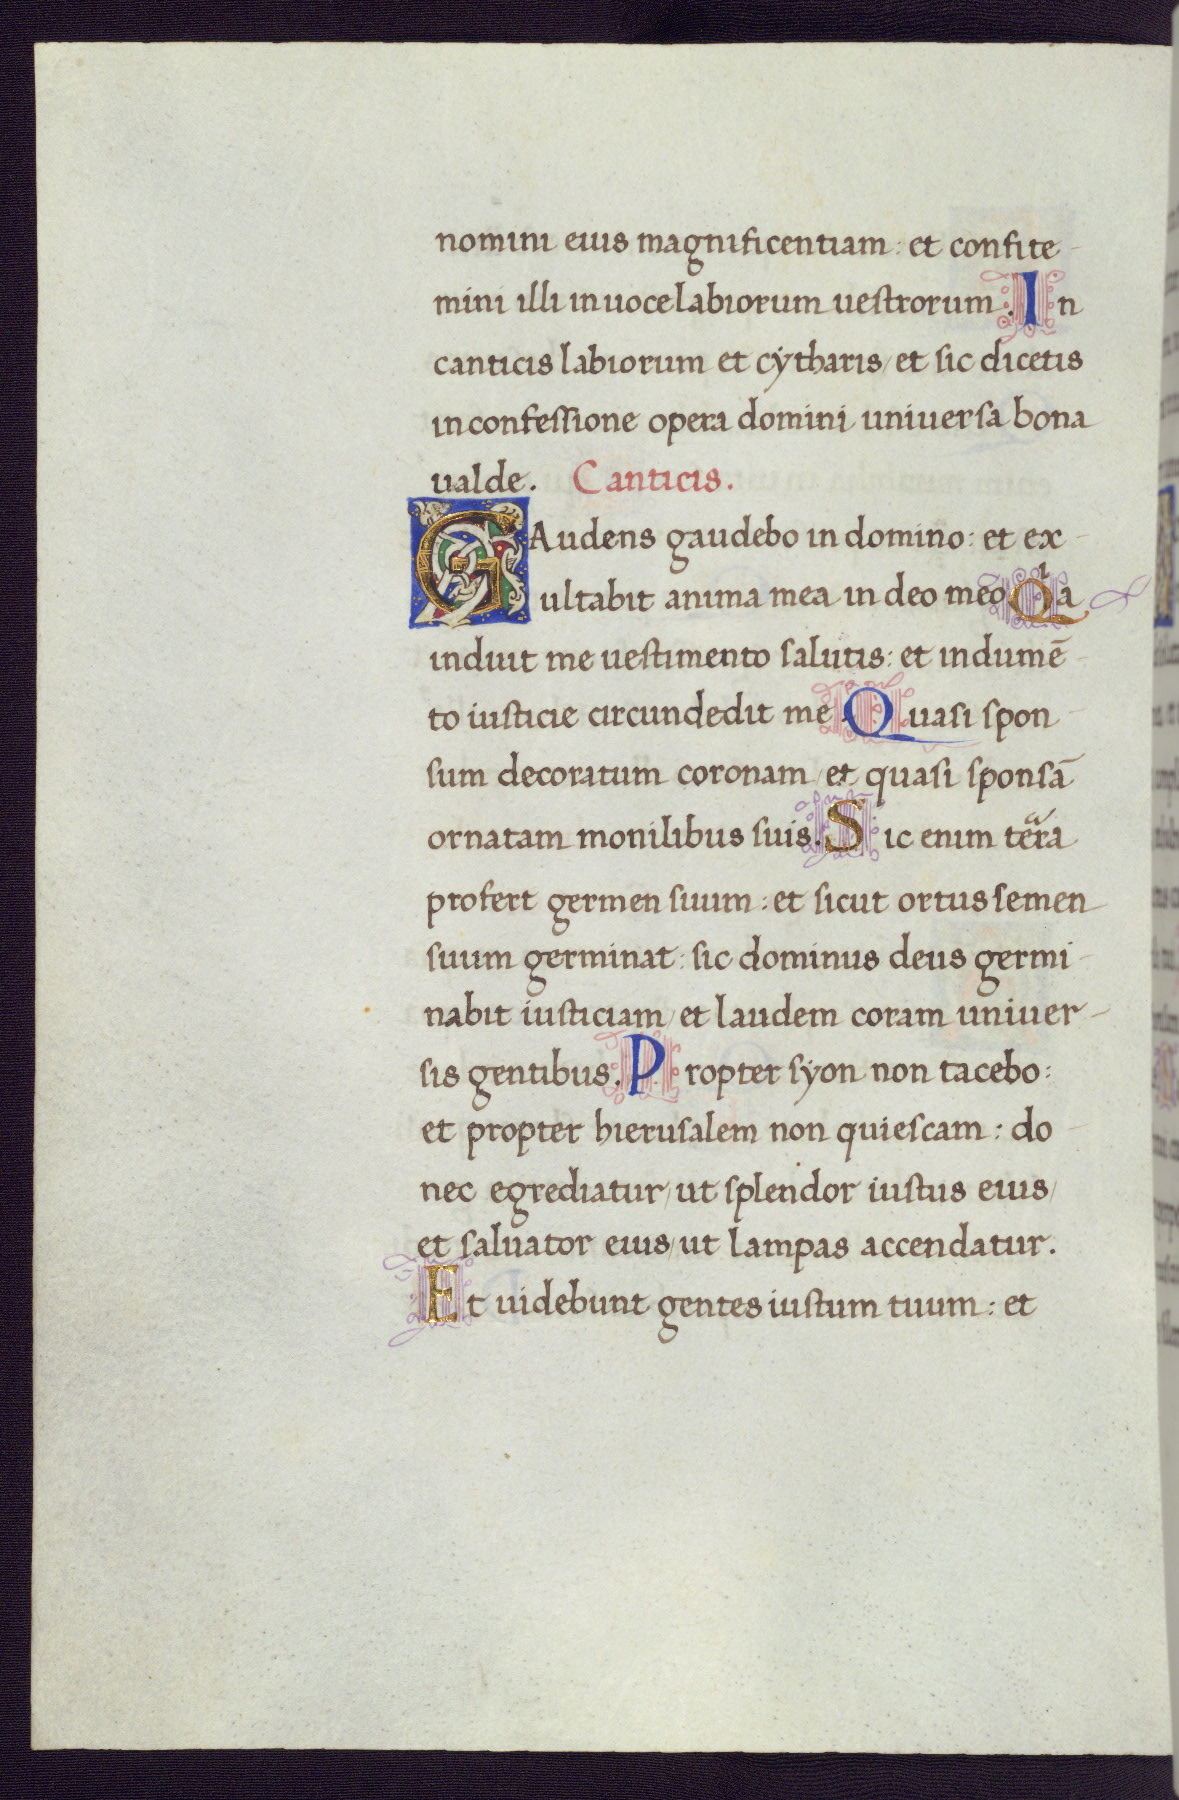 nomini eius magnificentiam: et confite-
mini illi in uoce labiorum uestrorum. In
canticis labiorum et cÿtharis/ et sic dicetis
in confessione opera domini uniuersa bona
ualde. Canticis.
GAudens gaudebo in domino: et ex-
ultabit anima mea in deo meo. Qͥa
induit me uestimento salutis: et indumē-
to iusticie circundedit me. Quasi spon-
sum decoratum coronam/ et quasi sponsā
ornatam monilibus suis. Sic enim terra
profert germen suum: et sicut ortus semen
suum germinat: sic dominus deus germi-
nabit iusticiam/ et laudem coram uniuer-
sis gentibus. Propter sÿon non tacebo:
et propter hierusalem non quiescam: do-
nec egrediatur/ ut splendor iustus eius/
et saluator eius/ ut lampas accendatur.
Et uidebunt gentes iustum tuum: et